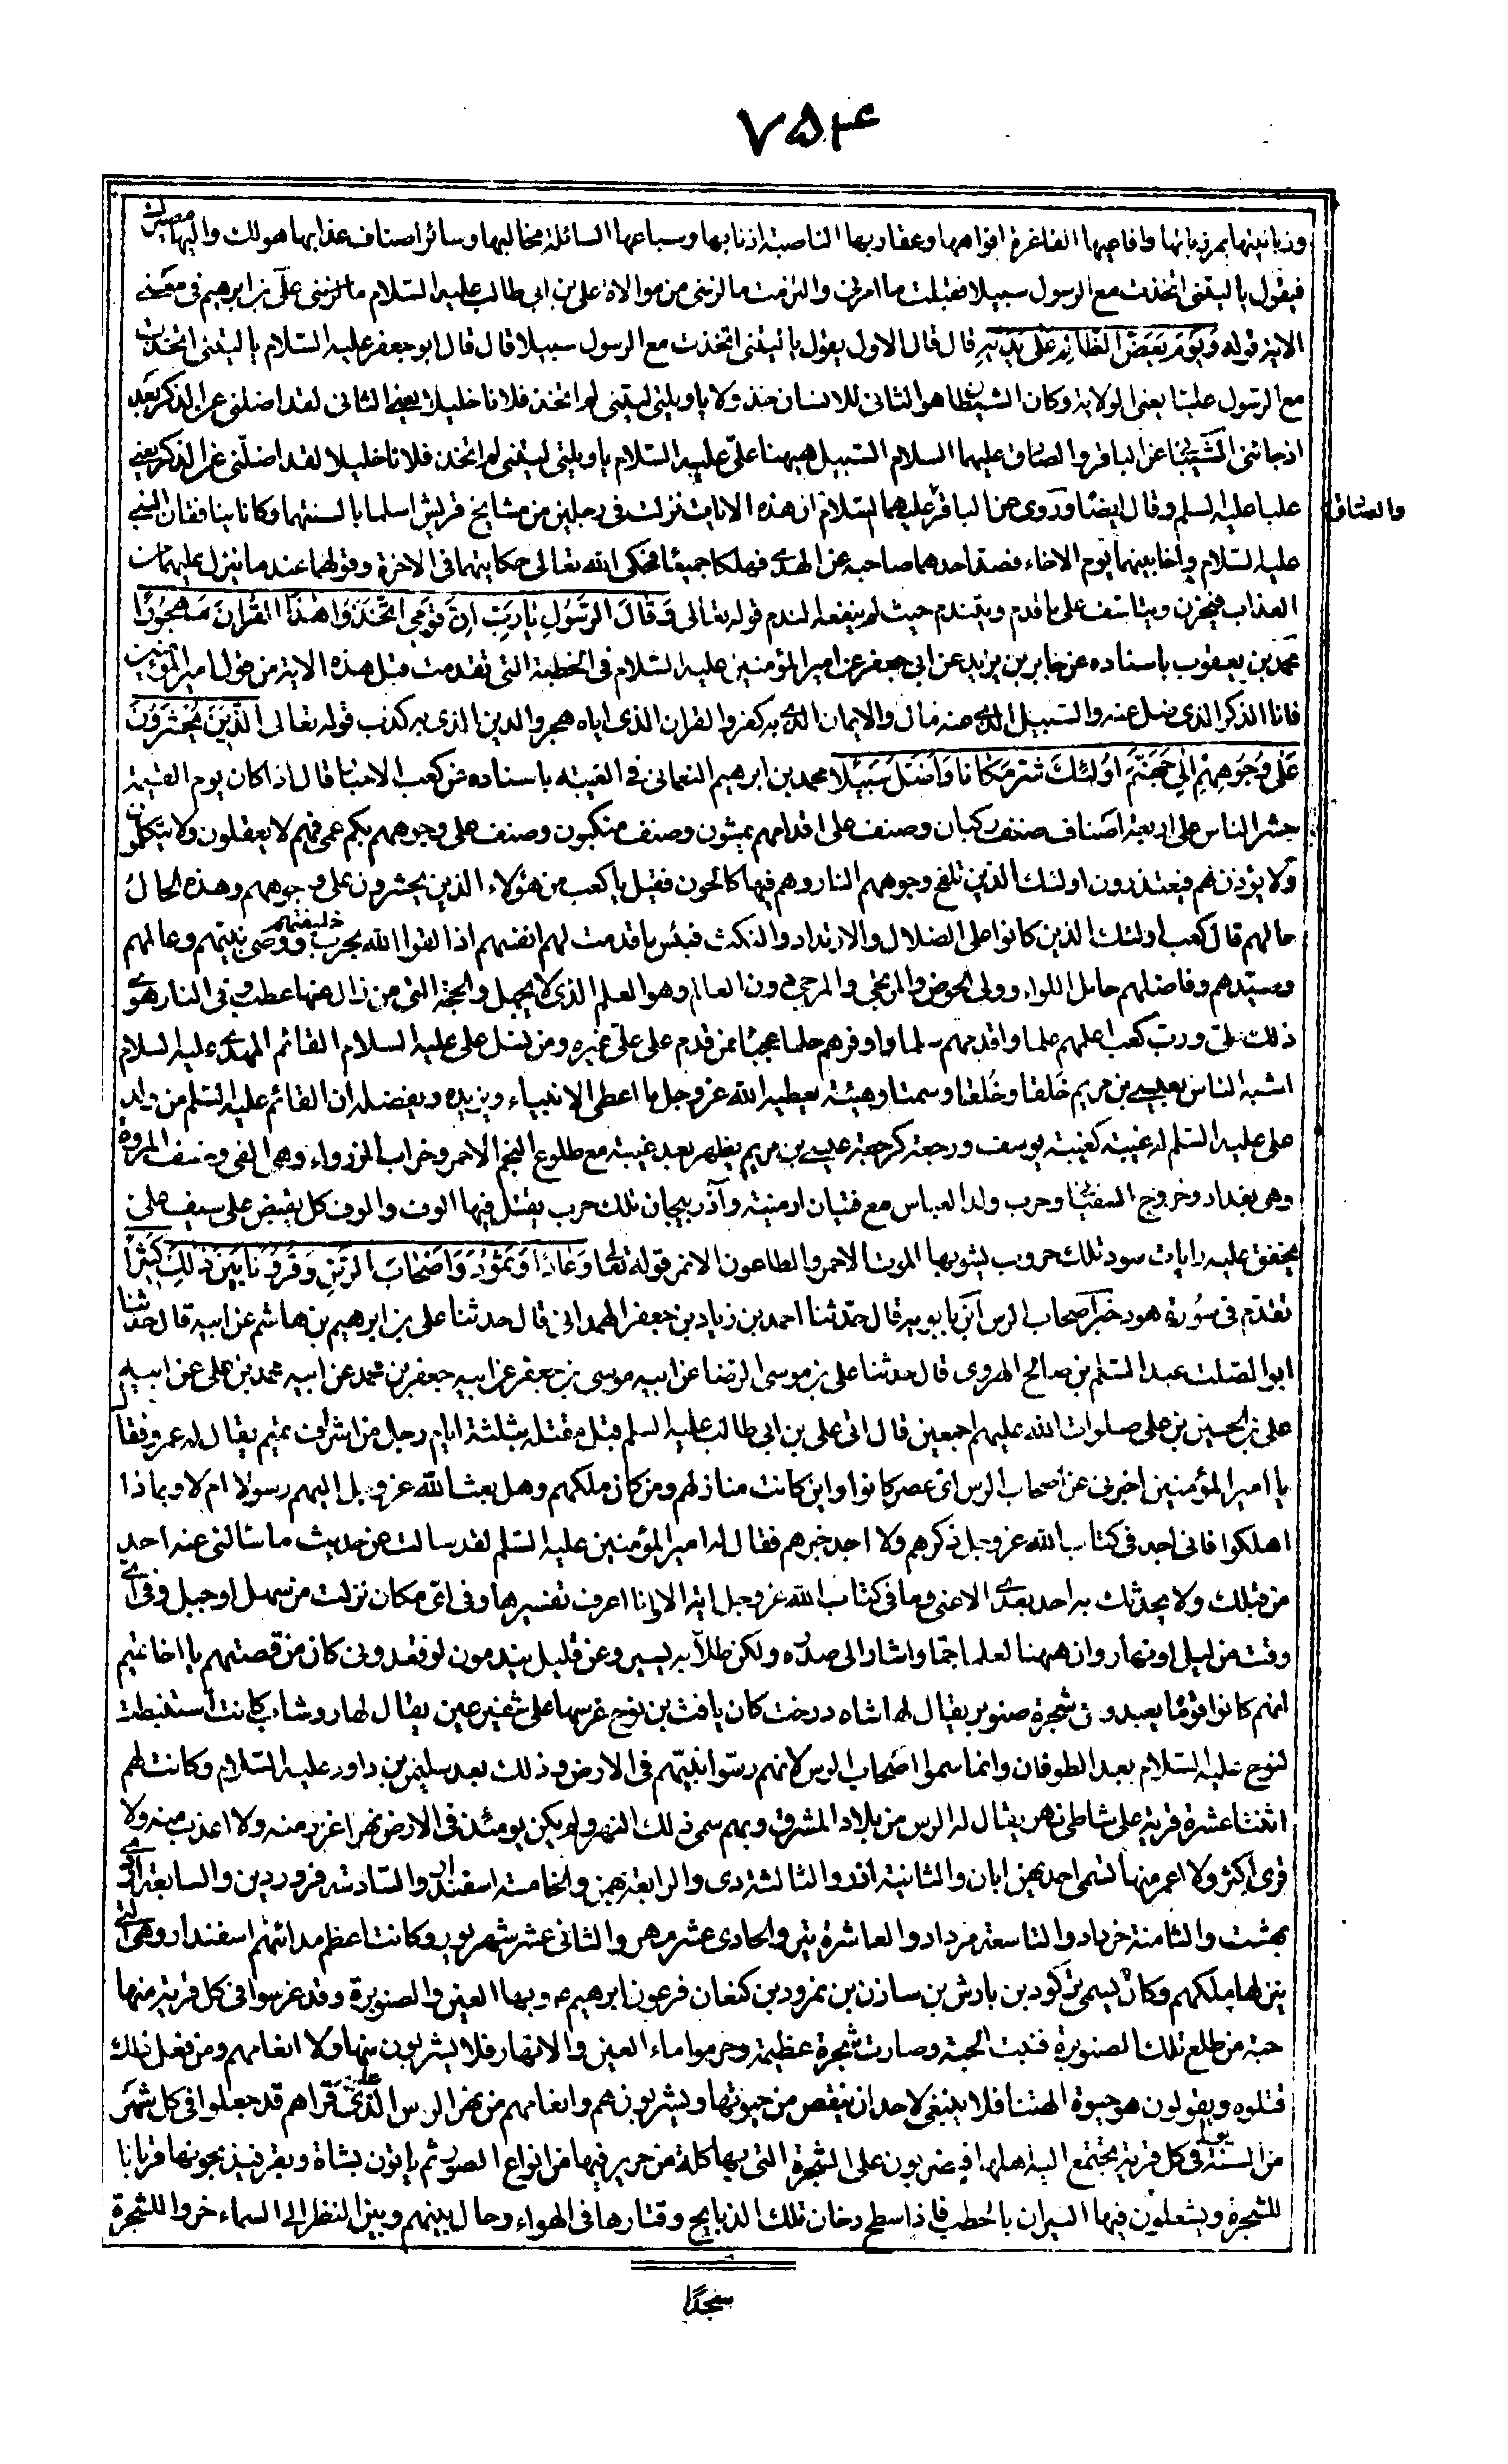 ٧٥۴
وزبانيتها بمرزباتها وافاعيها الفاغرة افواهها وعقاربها الناصبة اذنابها وسباعها السائلة مخالبها وسائر اصناف عذابها هو لك واليها مصيرك
فيقول يا ليتنى اتخذت مع الرسول سبيلا فقبلت ما امرنى والتزمت ما لزمنى من موالاة على بن ابى طالب عليه السّلام ما الزمنى علىّ بن ابرهيم فى معنى
الاية قوله وَيَوْمَ يَعَضُّ الظَّالِمُ عَلى يَدَيْهِ قال قال الاول يقول يا ليتنى اتخذت مع الرسول سبيلا قال قال ابو جعفر عليه السّلام يا ليتنى اتخذت
مع الرّسول عليّا يعنى الولاية وكان الشيطان هو الثانى للانسان خذولا يا ويلتى ليتنى لم اتخذ فلانا خليلا يعنى الثانى لقد اضلنى عن الذكر بعد
اذ جائنى الشّيبانى عن الباقر والصّادق عليهما السلام السّبيل ههنا علىّ عليه السّلام يا ويلتى ليتنى لم اتخذ فلانا خليلا لقد اضلّنى عن الذكر يعنى
عليا عليه السلم وقال ايضًا وروى عن الباقر عليهما السّلام ان هذه الايات نزلت فى رجلين من مشايخ قريش اسلما بالسنتهما وكانا ينافقان النبى
والصّادق
عليه السّلام واخا بينهما يوم الاخاء فصد احدهما صاحبه عن الهدى فهلكا جميعًا فحكى الله تعالى حكايتهما فى الاخرة وقولهما عند ما ينزل عليهما من
العذاب فيحزن ويتاسف على ما قدم ويتندم حيث لم ينفعه الندم قوله تعالى وَقالَ الرَّسُولُ يا رَبِّ اِنَّ قَوْمِى اتَّخَذُوا هٰذَا القُرانَ مَهجُورًا
محمّد بن يعقوب باسناده عن جابر بن يزيد عن ابى جعفر عن امير المؤمنين عليه السّلام فى الخطبة التى تقدمت قبل هذه الاية من قول امير المؤمنين
فانا الذكر الذى ضل عنه والسبيل الذى عنه مال والايمان الذى به كفر والقران الذى اياه هجر والدين الذى به كذب قوله تعالى الَّذِينَ يُحْشَرُونَ
عَلى وُجُوهِهِمْ اِلى جَهَنَّمَ اُولئِكَ شَرٌّ مَكانًا وَاَضَلُّ سَبِيلًا محمد بن ابرهيم النعمانى فى الغيبة باسناده عن كعب الاحبار قال اذا كان يوم القيمة
حشر الناس على اربعة اصناف صنف ركبان وصنف على اقدامهم يمشون وصنف منكبون وصنف على وجوههم بكم عمى فهم لا يعقلون ولا يتكلمون
ولا يؤذن لهم فيعتذرون اولئك الذين تلفح وجوههم النار وهم فيها كالحون فقيل يا كعب من هؤلاء الذين يحشرون على وجوههم وهذه الحال
حالهم قال كعب اولئك الذين كانوا على الضلال والارتداد والنكث فبئس ما قدمت لهم انفسهم اذا لقوا الله بحرب خليفتهم ووصى نبيّهم وعالمهم
وسيّدهم وفاضلهم حامل اللواء وولى الحوض والمرتجى والمرجى دون العالم وهو العلم الذى لا يجهل والحجّة التى من زال عنها عطب وفى النار هوى
ذلك علىّ ورب كعب اعلمهم علما واقدمهم سلما واوفرهم حلما عجبًا ممن قدم على علىّ غيره ومن نسل على عليه السلام القائم المهدى عليه السلام
اشبه الناس بعيسى بن مريم خَلقا وخُلقا وسمتا وهيئة يعطيه الله عز وجل ما اعطى الانبياء ويزيده ويفضله ان القائم عليه السّلم من ولد
على عليه السّلم له غيبة كغيبة يوسف ورجعة كرجعة عيسى بن مريم يظهر بعد غيبة مع طلوع النجم الاحمر وخراب الزوراء وهى الرى وخسف المزورة
وهى بغداد وخروج السفيانى وحرب ولد العباس مع فتيان ارمنية وآذربيجان تلك حرب يقتل فيها الوف والوف كل يقبض على سيف محلى
يخفق عليه رايات سود تلك حروب يشوبها الموت الاحمر والطاعون الاغبر قوله تعالى وَعادًا وَثَمُودَ وَاَصْحابَ الرَّسِّ وَقُرُونًا بَيْنَ ذلِكَ كَثِيرًا
تقدّم فى سُورة هود خبر اصحاب الرس ابن بابويه قال حدّثنا احمد بن زياد بن جعفر الهمدانى قال حدثنا على بن ابرهيم بن هاشم عن ابيه قال حدّثنا
ابو الصّلت عبد السّلم بن صالح الهروى قال حدثنا على بن موسى الرضا عن ابيه موسى بن جعفر عن ابيه جعفر بن محمد عن ابيه محمد بن على عن ابيه
على بن الحسين بن على صلوات الله عليهم اجمعين قال اتى على بن ابى طالب عليه السلم قبل مقتله بثلثة ايام رجل من اشراف تميم يقال له عمرو فقال
يا امير المؤمنين اخبرنى عن اصحاب الرس اى عصر كانوا واين كانت منازلهم ومن كان ملكهم وهل بعث الله عز وجل اليهم رسولا ام لا وبماذا
اهلكوا فانى اجد فى كتاب الله عز وجل ذكرهم ولا اجد خبرهم فقال له امير المؤمنين عليه السّلم لقد سالت عن حديث ما سألنى عنه احد
من قبلك ولا يحدثك به احد بعدى الا عنى وما فى كتاب الله عز وجل اية الا وانا اعرف تفسيرها وفى اى مكان نزلت من سهل او جبل وفى اى
وقت من ليل او نهار وان ههنا لعلما جمّا واشار الى صدره ولكن طلّابه يسير وعن قليل يندمون لو فقدونى كان من قصتهم يا اخا تميم
انهم كانوا قومًا يعبدون شجرة صنوبر يقال لها شاه درخت كان يافث بن نوح غرسها على شفير عين يقال لها روشاب كانت استنبطت
لنوح عليه السّلام بعد الطوفان وانما سموا اصحاب الرس لانهم رسّوا نبيّهم فى الارض وذلك بعد سليمن بن داود عليه السّلام وكانت لهم
اثنتا عشرة قرية على شاطئ نهر يقال له الرس من بلاد المشرق وبهم سمى ذلك النهر ولم يكن يومئذ فى الارض نهر اغزر منه ولا اعذب منه ولا
قرى اكثر ولا اعمر منها تسمى احديهن ابان والثانية اذر والثالثة دى والرابعة بهمن والخامسة اسفندار والسّادسة فروردين والسابعة اردى
بهشت والثامنة خرداد والتاسعة مرداد والعاشرة تير والحادى عشر مهر والثانى عشر شهريور وكانت اعظم مدائنهم اسفندار وهى التى
ينزلها ملكهم وكان يسمى تركوذ بن بارش بن سازن بن نمرود بن كنعان فرعون ابرهيم ع وبها العين والصنوبرة وقد غرسوا فى كل قرية منها
حبة من طلع تلك الصنوبرة فنبت الحبة وصارت شجرة عظيمة وحرموا ماء العين والانهار فلا يشربون منها ولا انعامهم ومن فعل ذلك
قتلوه ويقولون هو حيوة الهتنا فلا ينبغى لاحد ان ينقص من حيوتها ويشربون هم وانعامهم من نهر الرس الذى عليه قراهم قد جعلوا فى كل شهر
من السنة فى كل قرية يوما يجتمع اليه اهلها فيضربون على الشجرة التى بها كلة من حرير فيها من انواع الصور ثم ياتون بشاة وبقر فيذبحونها قربانا
للشجرة ويشعلون فيها النيران بالحطب فاذا سطع دخان تلك الذبايح وقتارها فى الهواء وحال بينهم وبين النظر الى السماء خروا للشجرة
سجدًا